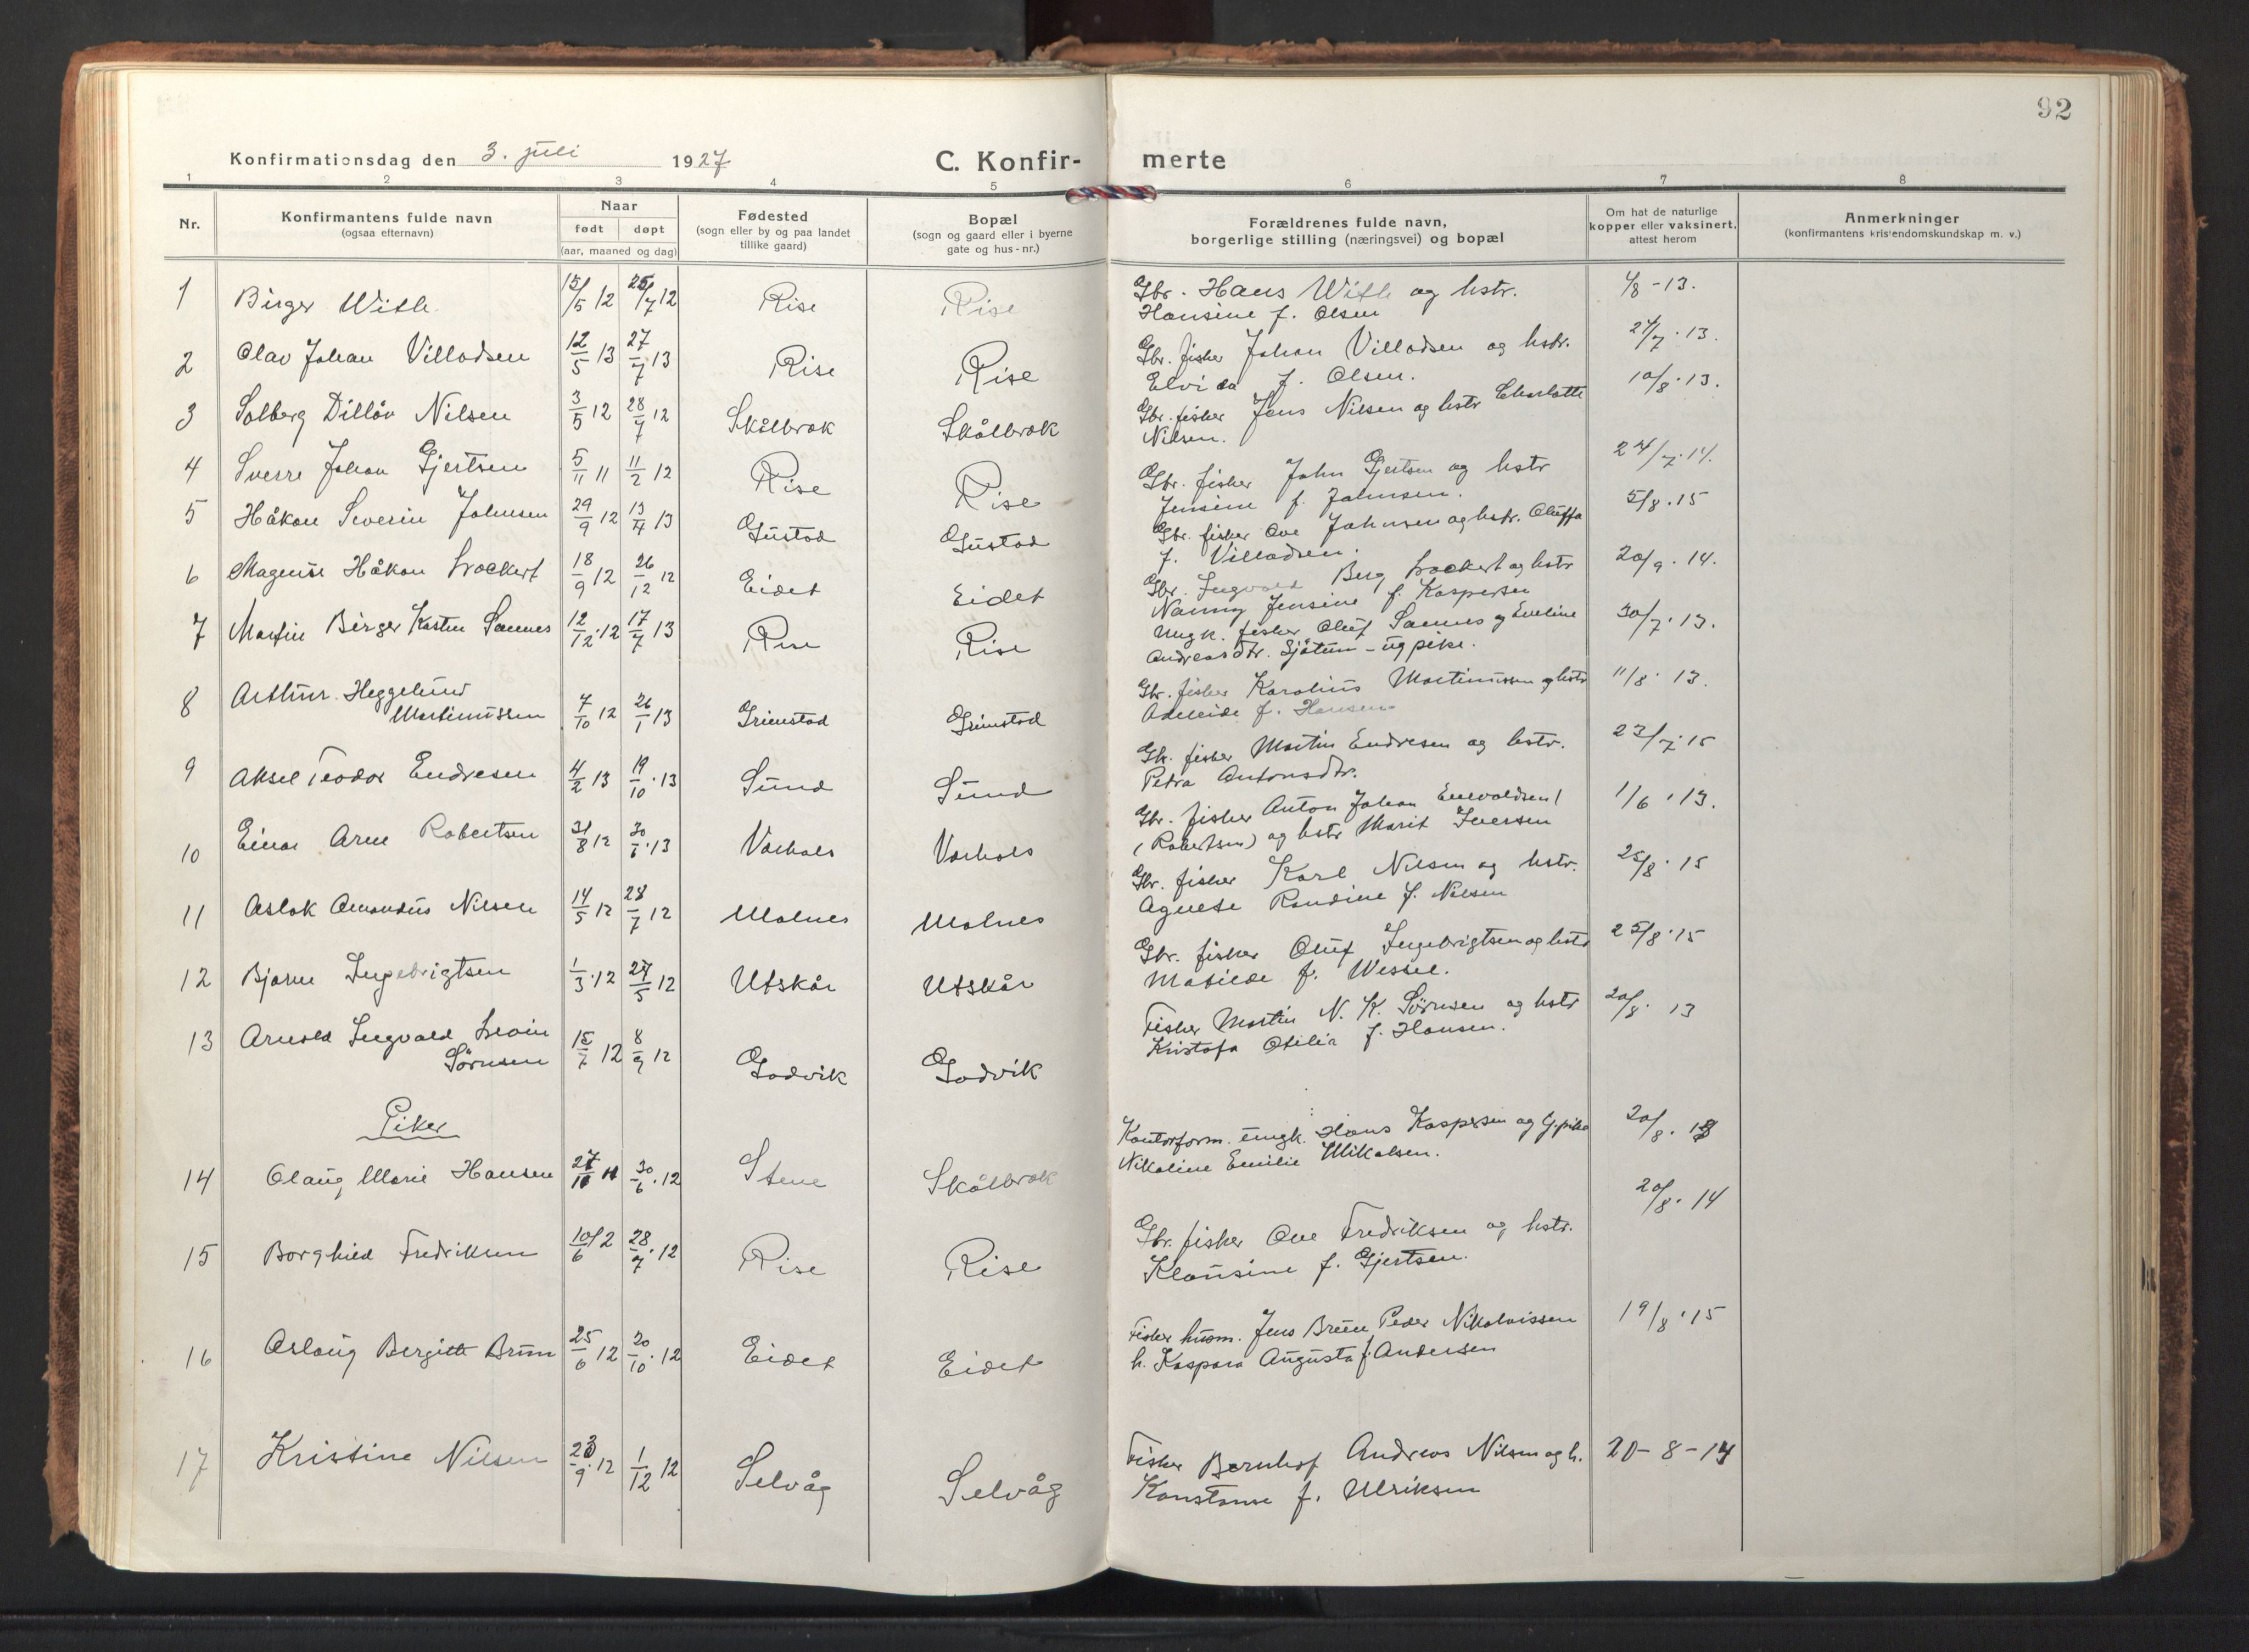 92
Konfirmationsdag den 3. juli 1927
C. Konfir- merte
1 2 3 4 5 6 7 8
Nr.
Konfirmantens fulde navn
(ogsaa efternavn)
Naar
født døpt
(aar, maaned og dag)
Fødested
(sogn eller by og paa landet
tillike gaard)
Bopæl
(sogn og gaard eller i byerne
gate og hus-nr.)
Forældrenes fulde navn,
borgerlige stilling (næringsvei) og bopæl
Om hat de naturlige
kopper eller vaksinert,
attest herom
Anmerkninger
(konfirmantens kristendomskundskap m. v.)
1 Birger With 15/5 12 /7 12 Rise Rise Gbr. Hans With og hstr. 4/8 - 13.
Hansine f. Olsen
2 Olav Johan Villadsen 12/5 13 27/7 13 Rise Rise Gbr. fisker Johan Villadsen og hstr. /7. 13.
Elvida f. Olsen.
3 Solberg Nilsen 3/5 12 28/7 12 Skålbrok Skålbrok Gbr. fisker Jens Nilsen og hstr Charlotte 10/8. 13.
Nilsen.
4 Sverre Johan Gjertsen 5/11 11 11/2 12 Rise Rise Gbr. fisker John Gjertsen og hstr 24/7. 14.
Jensine f. Johnsen.
5 Håkon Severin Johnsen 29/9 12 13/4 13 Gustad Gustad Gbr. fisker Ove Johnsen og hstr. Oluffa 5/8. 15
f. Villadsen.
6 Magnus Håkon Lockert 18/9 12 26/12 12 Eidet Eidet Gbr. Ingvald Berg Lockert og hstr 20/9. 14.
Nanny Jensine f. Kaspersen
7 Martin Birger Karsten Sannes 12/12. 12 17/7 13 Rise Rise Ungk. fisker Oluf Sannes og Eveline 30/7. 13.
Andreasdtr. - ug pike.
8 Arthur Heggelund
Martinussen 7/10 12 26/1 13 Grimstad Grimstad Gbr. fisker Karolius Martinussen og hstr 11/8. 13.
Adeleide f. Hansen
9 Aksel Teodor Endresen 4/2 13 19/10. 13 Sund Sund Gbr. fisker Martin Endresen og hstr. 23/7. 15
Petra Antonsdtr.
10 Einar Arne Robertsen 31/8 12 30/. 13 Vorhals Vorhals Gbr. fisker Anton Johan Enevoldsen 1/6. 13.
(Robertsen) og hstr Marit Iversen
11 Aslak Amandus Nilsen 14/5 12 28/7 12 Malnes Malnes Gbr. fisker Karl Nilsen og hstr. 25/8. 15
Agnete Randine f. Nilsen
12 Bjarne Ingebrigtsen 1/3. 12 27/5 12 Utskår Utskår Gbr. fisker Oluf Ingebrigtsen og hstr 25/8. 15
Matilde f. Wessel.
13 Arnold Ingvald
Sørnsen 15/7 12 8/9 12 Godvik Godvik Fisker Martin N. K. Sørnsen og hstr 20/8. 13
Kristofa Otilia f. Hansen.
Piker
14 Olaug Marie Hansen 27/10 11 30/6. 12 Stene Skålbrok Kontorform. ungk. Hans Kaspersen og G. pike 20/8. 13
Nikoline Emilie Mikalsen.
15 Borghild Fredriksen 10/6 12 28/7. 12 Rise Rise Gbr. fisker Ove Fredriksen og hstr. 20/8. 14
Klausine f. Gjertsen.
16 Aslaug Bergitte Brun 25/6 12 20/10. 12 Eidet Eidet Fisker husm. Jens Brun Peder Nikolaissen 19/8. 15
h. Kaspara Augusta f. Andersen
17 Kristine Nilsen 23/9. 12 1/12 12 Selvåg Selvåg Fisker Bernhof Andreas Nilsen og h. 20-8-14
Konstanse f. Ulriksen